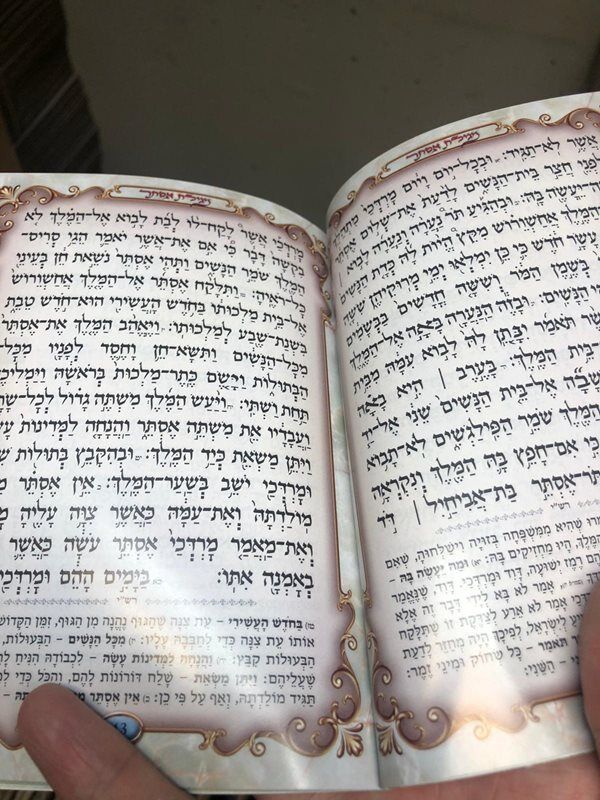 מגילת אסתר
אֲשֶׁר לֹא־תַגִּיד׃ וּבְכָל־יוֹם וָיוֹם מָרְדֳּכַי
לִפְנֵי חֲצַר בֵּית־הַנָּשִׁים לָדַעַת אֶת־שְׁלוֹם אֶסְתֵּר
יֵּעָשֶׂה בָּהּ׃ וּבְהַגִּיעַ תֹּר נַעֲרָה וְנַעֲרָה לָבוֹא ׀
הַמֶּלֶךְ אֲחַשְׁוֵרוֹשׁ מִקֵּץ הֱיוֹת לָהּ כְּדָת הַנָּשִׁים
עָשָׂר חֹדֶשׁ כִּי כֵּן יִמְלְאוּ יְמֵי מְרוּקֵיהֶן
בְּשֶׁמֶן הַמֹּר וְשִׁשָּׁה חֳדָשִׁים בַּבְּשָׂמִים
הַנָּשִׁים׃ וּבָזֶה הַנַּעֲרָה בָּאָה אֶל־הַמֶּלֶךְ
אֲשֶׁר תֹּאמַר יִנָּתֵן לָהּ לָבוֹא עִמָּהּ מִבֵּית
בֵּית הַמֶּלֶךְ׃ בָּעֶרֶב ׀ הִיא בָאָה
שָׁבָה אֶל־בֵּית הַנָּשִׁים שֵׁנִי אֶל־יַד
הַמֶּלֶךְ שֹׁמֵר הַפִּילַגְשִׁים לֹא־תָבוֹא
כִּי אִם־חָפֵץ בָּהּ הַמֶּלֶךְ וְנִקְרְאָה
תֹּר־אֶסְתֵּר בַּת־אֲבִיחַיִל ׀ דֹּד
רש"י
שֶׁהִיא מִמִּשְׁפָּחָה בְּזוּיָה וִישַׁלְּחוּהָ, שֶׁאִם
הַמֶּלֶךְ, הָיוּ מַחֲזִיקִים בָּהּ׃ וּמַה יֵּעָשֶׂה בָּהּ –
רֶמֶז יְשׁוּעָה, דָּוִד וּמָרְדֳּכַי. דָּוִד, שֶׁנֶּאֱמַר
אָמַר לֹא בָא לִידֵי דָּבָר זֶה אֶלָּא
יִשְׂרָאֵל, לְפִיכָךְ הָיָה מְחַזֵּר לָדַעַת
תֹּאמַר – כָּל שְׂחוֹק וּמִינֵי זֶמֶר׃
– הַשֵּׁנִי׃
מגילת אסתר
מָרְדֳּכַי אֲשֶׁר לָקַח־לוֹ לְבַת לָבוֹא אֶל־הַמֶּלֶךְ לֹא
בִקְשָׁה דָּבָר כִּי אִם אֶת־אֲשֶׁר יֹאמַר הֵגַי סְרִיס־
הַמֶּלֶךְ שֹׁמֵר הַנָּשִׁים וַתְּהִי אֶסְתֵּר נֹשֵׂאת חֵן בְּעֵינֵי
כָּל־רֹאֶיהָ׃ וַתִּלָּקַח אֶסְתֵּר אֶל־הַמֶּלֶךְ אֲחַשְׁוֵרוֹשׁ
אֶל־בֵּית מַלְכוּתוֹ בַּחֹדֶשׁ הָעֲשִׂירִי הוּא־חֹדֶשׁ טֵבֵת
בִּשְׁנַת־שֶׁבַע לְמַלְכוּתוֹ׃ וַיֶּאֱהַב הַמֶּלֶךְ אֶת־אֶסְתֵּר
מִכָּל־הַנָּשִׁים וַתִּשָּׂא־חֵן וָחֶסֶד לְפָנָיו מִכָּל־
הַבְּתוּלוֹת וַיָּשֶׂם כֶּתֶר־מַלְכוּת בְּרֹאשָׁהּ וַיַּמְלִיכֶהָ
תַּחַת וַשְׁתִּי׃ וַיַּעַשׂ הַמֶּלֶךְ מִשְׁתֶּה גָדוֹל לְכָל־
וַעֲבָדָיו אֵת מִשְׁתֵּה אֶסְתֵּר וַהֲנָחָה לַמְּדִינוֹת
וַיִּתֵּן מַשְׂאֵת כְּיַד הַמֶּלֶךְ׃ וּבְהִקָּבֵץ בְּתוּלוֹת
וּמָרְדֳּכַי יֹשֵׁב בְּשַׁעַר־הַמֶּלֶךְ׃ אֵין אֶסְתֵּר
מוֹלַדְתָּהּ וְאֶת־עַמָּהּ כַּאֲשֶׁר צִוָּה עָלֶיהָ
וְאֶת־מַאֲמַר מָרְדֳּכַי אֶסְתֵּר עֹשָׂה כַּאֲשֶׁר
בְאָמְנָה אִתּוֹ׃ בַּיָּמִים הָהֵם וּמָרְדֳּכַי
רש"י
(טז) בַּחֹדֶשׁ הָעֲשִׂירִי – עֵת צִנָּה שֶׁהַגּוּף נֶהֱנֶה מִן הַגּוּף, זִמֵּן הַקָּדוֹשׁ
אוֹתוֹ עֵת צִנָּה כְּדֵי לְחַבְּבָהּ עָלָיו׃ מִכָּל הַנָּשִׁים – הַבְּעוּלוֹת,
הַבְּעוּלוֹת קִבֵּץ׃ וַהֲנָחָה לַמְּדִינוֹת עָשָׂה – לִכְבוֹדָהּ הֵנִיחַ
שֶׁעֲלֵיהֶם׃ וַיִּתֵּן מַשְׂאֵת – שָׁלַח דּוֹרוֹנוֹת לָהֶם, וְהַכֹּל כְּדֵי
תַּגִּיד מוֹלַדְתָּהּ, וְאַף עַל פִּי כֵן׃ (כ) אֵין אֶסְתֵּר